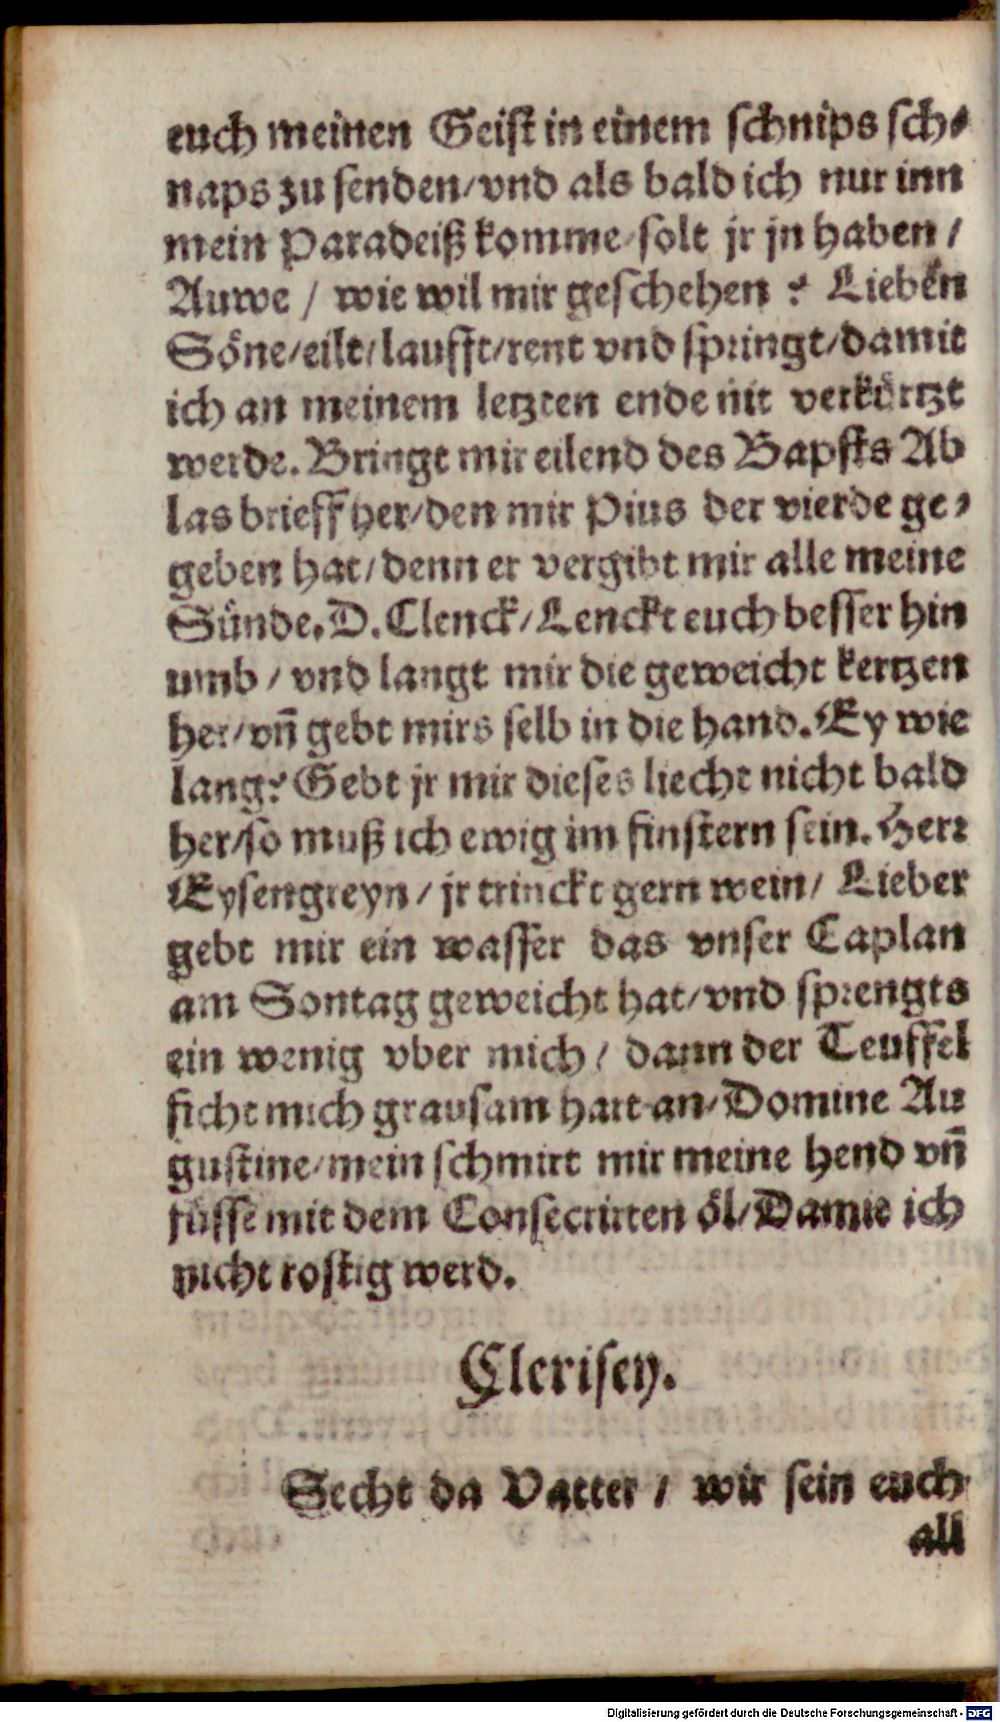 euch meinen Geist in einem schnips sch⸗
naps zu senden/vnd als bald ich nur inn
mein Paradeiß komme/solt jr jn haben/
Auwe / wie wil mir geschehen ? Lieben
Söne/eilt/laufft/rent vnd springt/damit
ich an meinem letzten ende nit verkürtzt
werde. Bringt mir eilend des Bapsts Ab
las brieff her/den mir Pius der vierde ge⸗
geben hat/denn er vergibt mir alle meine
Sünde. D. Clenck/Lenckt euch besser hin
umb / vnd langt mir die geweicht kertzen
her/vñ gebt mirs selb in die hand. Ey wie
lang? Gebt jr mir dieses liecht nicht bald
her/so muß ich ewig im finstern sein. Herr
Eysengreyn / jr trinckt gern wein/ Lieber
gebt mir ein wasser das vnser Caplan
am Sontag geweicht hat/vnd sprengts
ein wenig vber mich / dann der Teuffel
ficht mich grausam hart an/Domine Au
gustine/mein schmirt mir meine hend vñ
füsse mit dem Consecrirten öl/Damit ich
nicht rostig werd.
Clerisey.
Secht da Vatter / wir sein euch
all
Digitalisierung gefördert durch die Deutsche Forschungsgemeinschaft - DFG